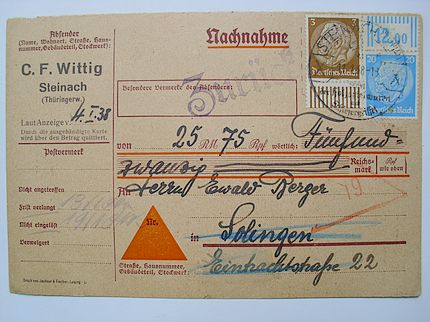 Absender
(Name, Wohnort, Straße, Haus-
nummer, Gebäudeteil, Stockwerk):
Nachnahme
C. F. Wittig
Steinach
(Thüringerw.)
Laut Anzeige v. 4. I. 38
Durch die ausgehändigte Karte
wird über den Betrag quittiert.
Postvermerk
Zurück
Besondere Vermerke des Absenders:
3
3
Deutsches Reich
12.00
20
20
Deutsches Reich
von 25 RM 75 Rpf wörtlich: Fünfund-
zwanzig
Reichs-
mark
Rpf
wie oben
Nicht angetroffen
Frist verlangt
Nicht eingelöst
Verweigert
An Herrn Ewald Berger
79
Nr.
in Solingen
Straße, Hausnummer,
Gebäudeteil, Stockwerk:
Eintrachtstraße 22